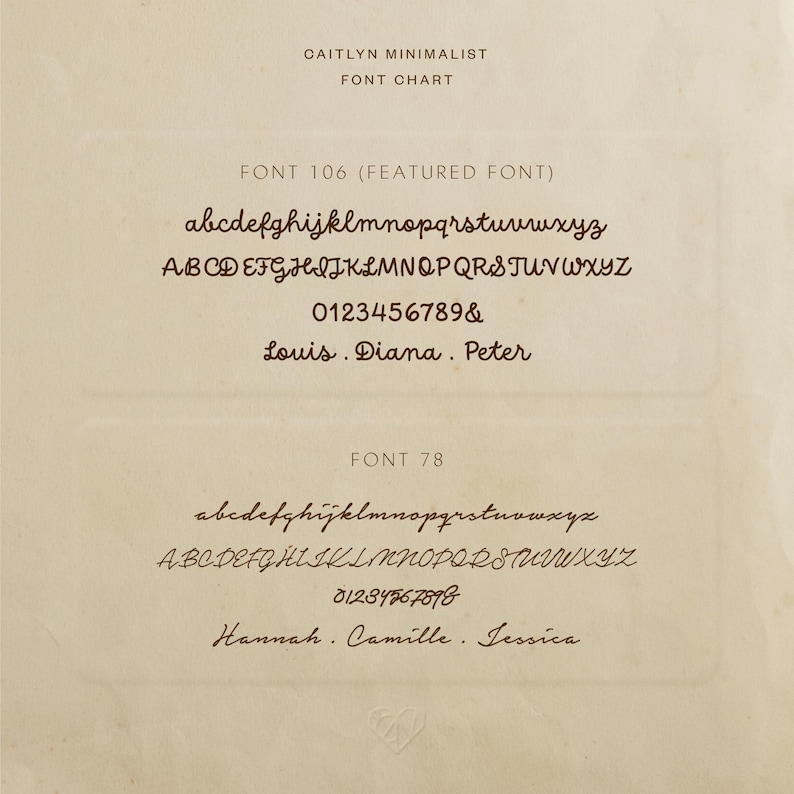 CAITLYN MINIMALIST
FONT CHART
FONT 106 (FEATURED FONT)
abcdefghijklmnopqrstuvwxyz
ABCDEFGHIJKLMNOPQRSTUVWXYZ
0123456789&
Louis . Diana . Peter
FONT 78
abcdefghijklmnopqrstuvwxyz
ABCDEFGHIJKLMNOPQRSTUVWXYZ
0123456789&
Hannah . Camille . Jessica